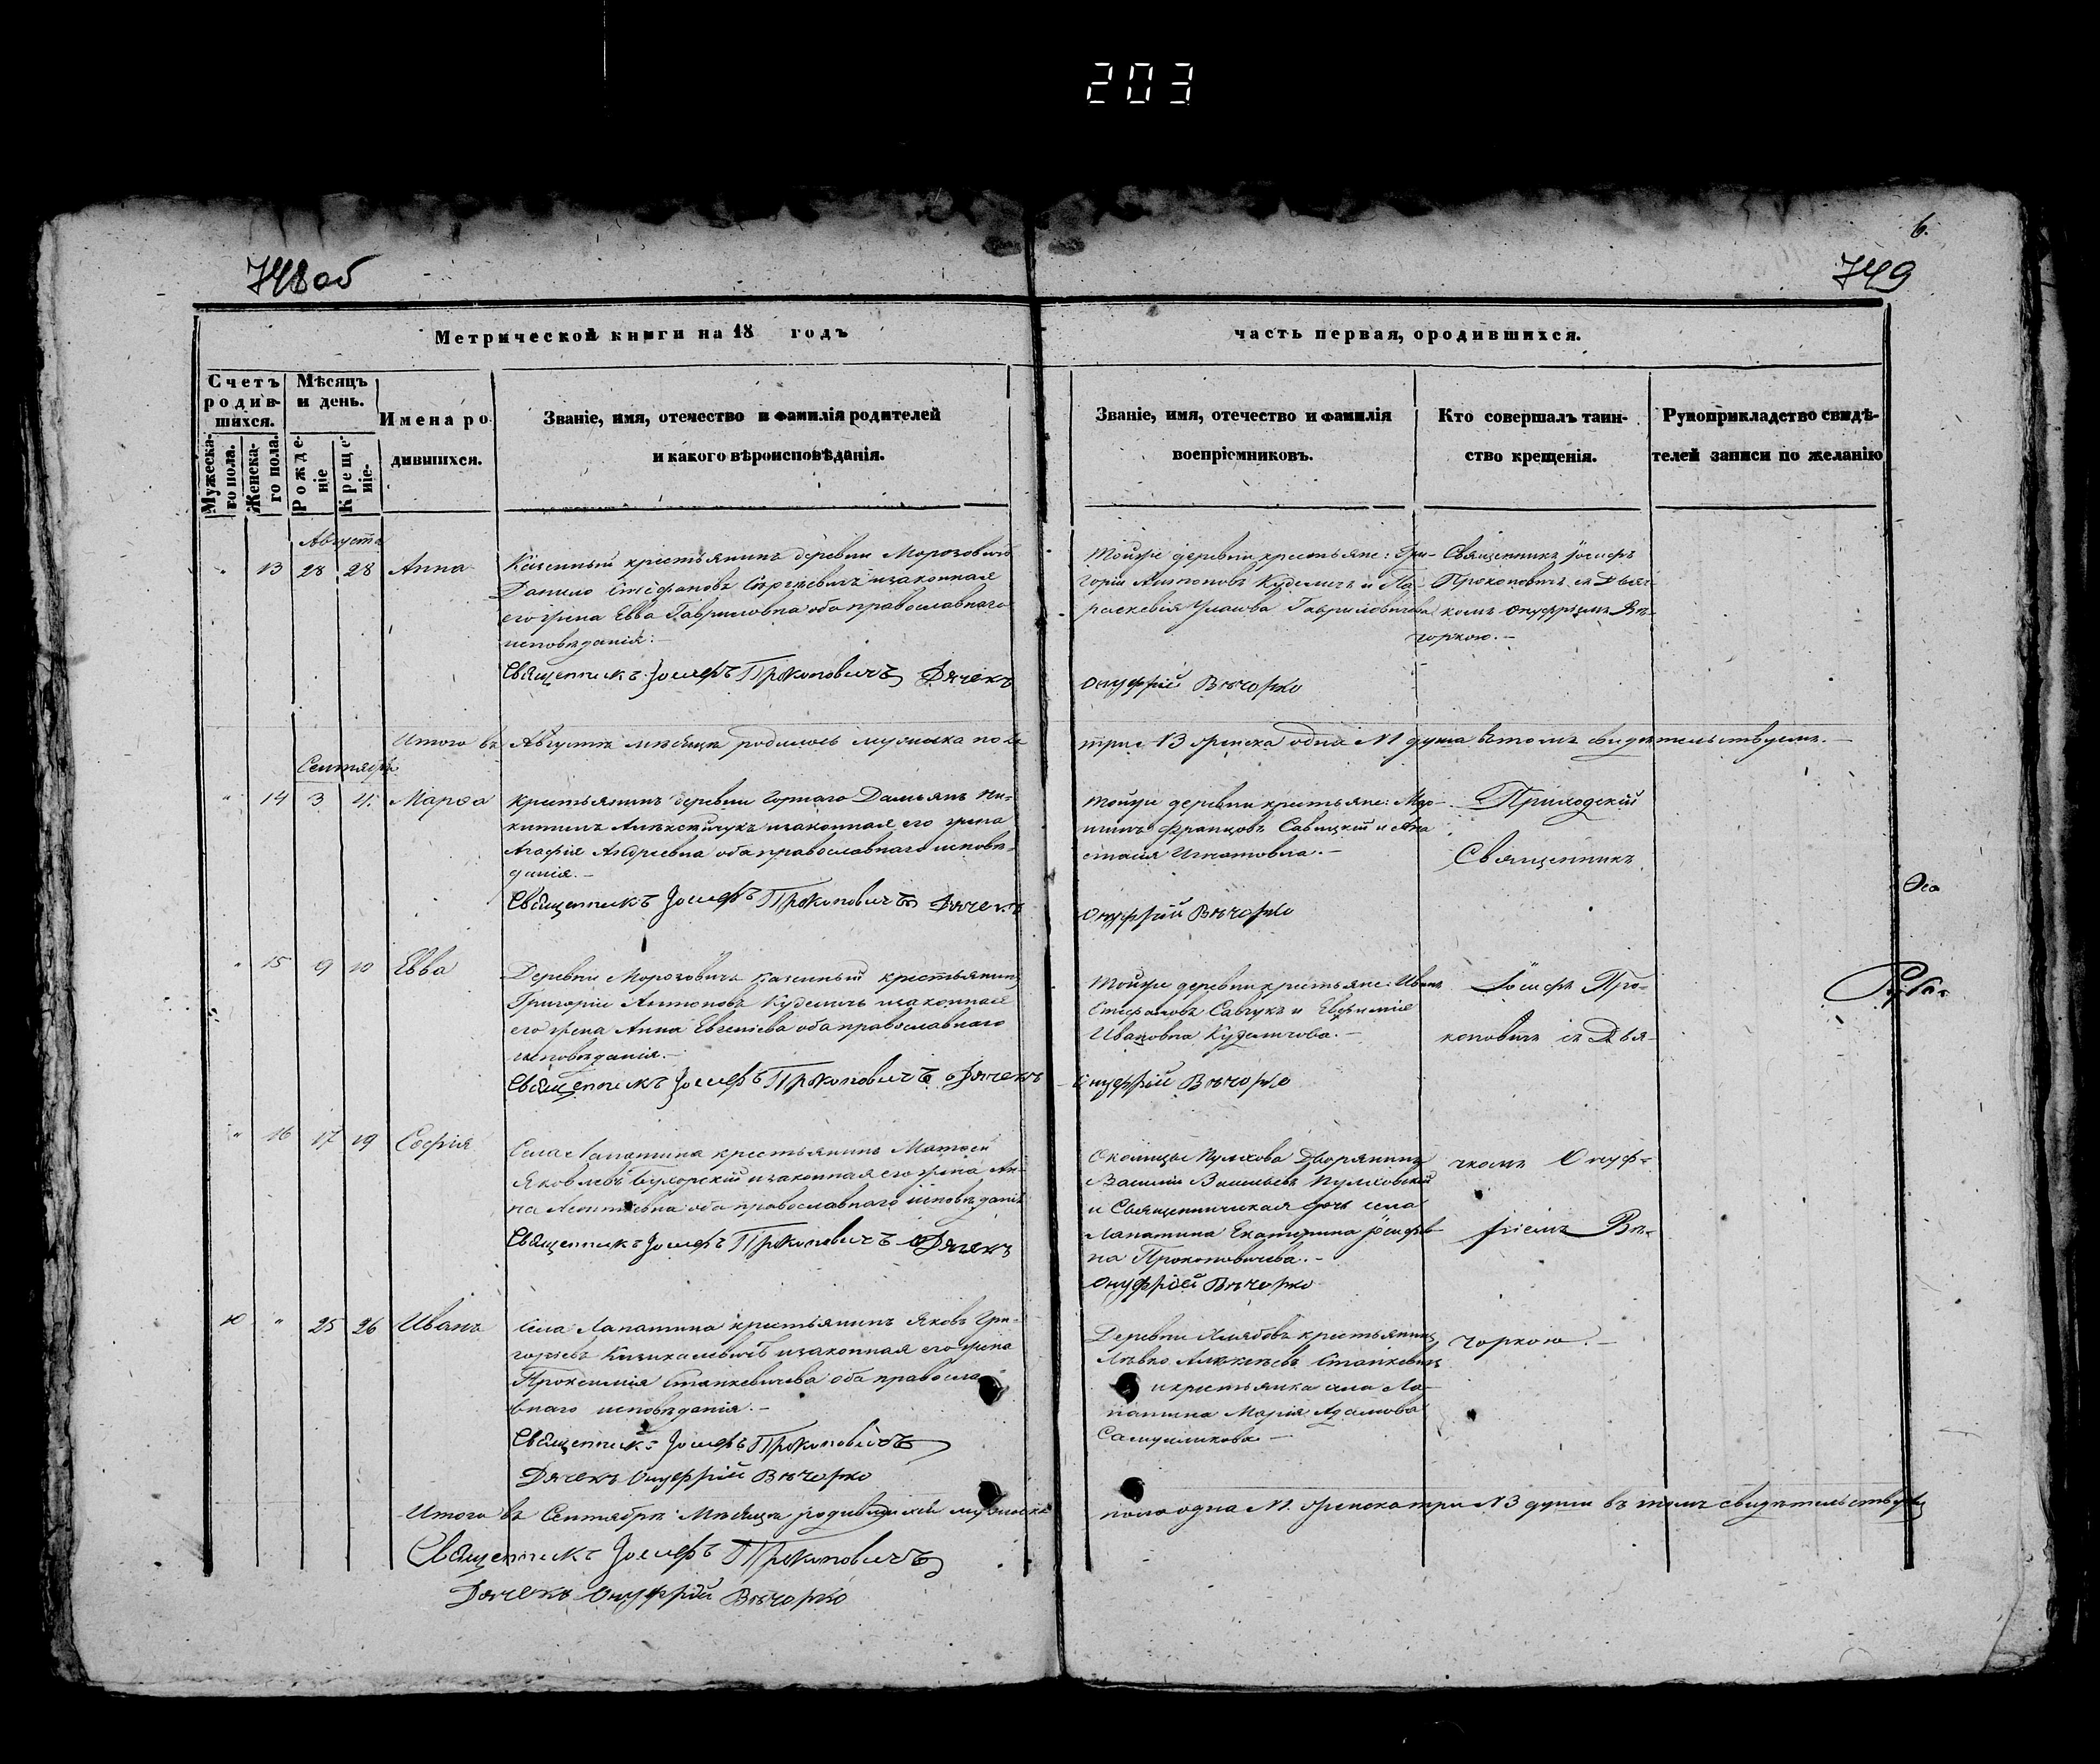 203
6.
748об
749
Метрической книги на 18 годъ
часть первая, ородившихся.
Счетъ родив-шихся.
Мужеска-го пола.
Женска-го пола.
Мѣсяцъ и день.
Рожде-ніе
Креще-ніе.
Имена ро
дившихся.
Званіе, имя, отечество и фамилія родителей
и какого вѣроисповѣданія.
Званіе, имя, отечество и фамилія
воспріемниковъ.
Кто совершалъ таин-
ство крещенія.
Рукоприкладство свидѣ-
телей записи по желанію
Августа
" 13 28 28 Анна
Казенный крестьянинъ деревни Морозовичь
Данило Стефановъ изаконная
его жена Евва Гавриловна оба православнаго
исповѣданія.-
Священникъ Іосифъ Прокоповичъ Дячекъ
Тойже деревни крестьяне: Гри-
горій Антоновъ Куделичъ и Па-
раскевія
Онуфрій Вѣчорко
Священникъ Іосифъ
Прокоповичъ съ Дьяч-
комъ Онуфріемъ Вѣ-
чоркою.-
Итого въ Августѣ мѣсяцѣ родилось мужска пола
три N3 женска одна N1 душа вътомъ свидѣтельствуемъ.-
Сентября
" 14 3 4. Марѳа
Крестьянинъ деревни Горнаго Дамьянъ Ни-
китинъ изаконная его жена
Агафія Андреевна оба православнаго исповѣ-
данія.-
Священникъ Іосифъ Прокоповичъ Дячекъ
Тойже деревни крестьяне: Мар-
тинъ Францовъ Савицкій и Ана
стасія Игнатовна.-
Онуфрій Вѣчорко
Приходскій
Священникъ
" 15 9 10 Евва
Деревни Морозовичь казенный крестьянинъ
Григорій Антоновъ Куделичъ изаконная
его жена Анна Евгеніева оба православнаго
исповѣданія.-
Священникъ Іосифъ Прокоповичъ Дячекъ
Тойже деревни крестьяне: Иванъ
Стефановъ Савчукъ и Евфимія
Ивановна Куделичова.-
Онуфрій Вѣчорко
Іосифъ Про-
коповичъ съ Дья-
" 16 17 19 Софія
Села Лапатина крестьянинъ Матѳей
Яковлевъ изаконная его жена Ан-
на Леонтіевна оба православнаго исповѣданія
Священникъ Іосифъ Прокоповичъ Дячекъ
Околицы Пулхова Дворянинъ
Василій Васильевъ Пулховскій
и Священническая дочь села
Лапатина Екатерина Іосифов-
на Прокоповичева.-
Онуфрій Вѣчорко
чкомъ Онуф-
ріемъ Вѣ-
10 " 25 26 Иванъ
Села Лапатина крестьянинъ Яковъ Гри-
горьевъ изаконная его жена
Станкевичева оба православ
внаго исповѣданія.-
Священникъ Іосифъ Прокоповичъ
Дячекъ Онуфрій Вѣчорко
Деревни крестьянинъ
Алексѣевъ Станкевичъ
и крестьянка села Ла-
патина Марія Адамова
чоркою.-
Итого въ Сентябрѣ Мѣсяцѣ мужеска
пола одна N1. женска три N3 души въ томъ свидѣтельствуемъ
Священникъ Іосифъ Прокоповичъ
Дячекъ Онуфрій Вѣчорко